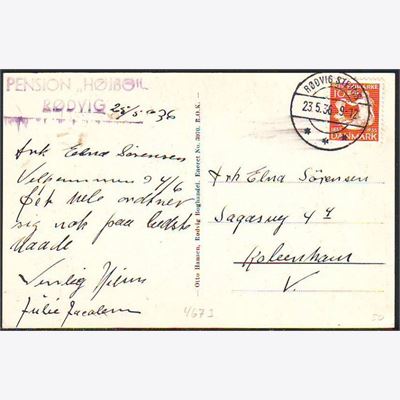 PENSION „HØJBO"
RØDVIG
23/5 1936
Frk Elna Sörensen
Velkommen d 4/6
Det hele ordner
sig nok paa bedste
Maade
Venlig Hilsen
Julie Jacobsen
Otto Hansen, Rødvig Boghandel. Eneret No. 3070. R.O.K.
RØDVIG STEVNS
23.5.36. 9-12
10
DANMARK
Frk Elna Sörensen
Sagasvej 4
Kobenhavn
V.
4673
50